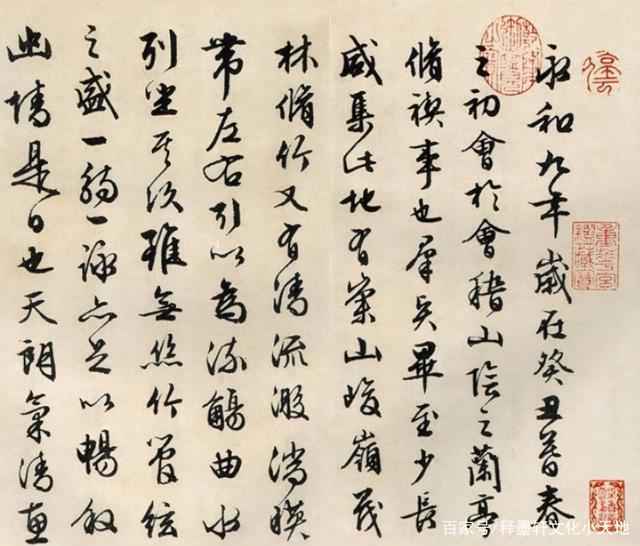 永和九年歲在癸丑暮春
之初會於會稽山陰之蘭亭
脩禊事也羣賢畢至少長
咸集此地有崇山峻嶺茂
林脩竹又有清流激湍暎
帶左右引以為流觴曲水
列坐其次雖無絲竹管絃
之盛一觴一詠亦足以暢敘
幽情是日也天朗氣清惠
重華宮
鑑藏寶
百家号/释墨轩文化小天地